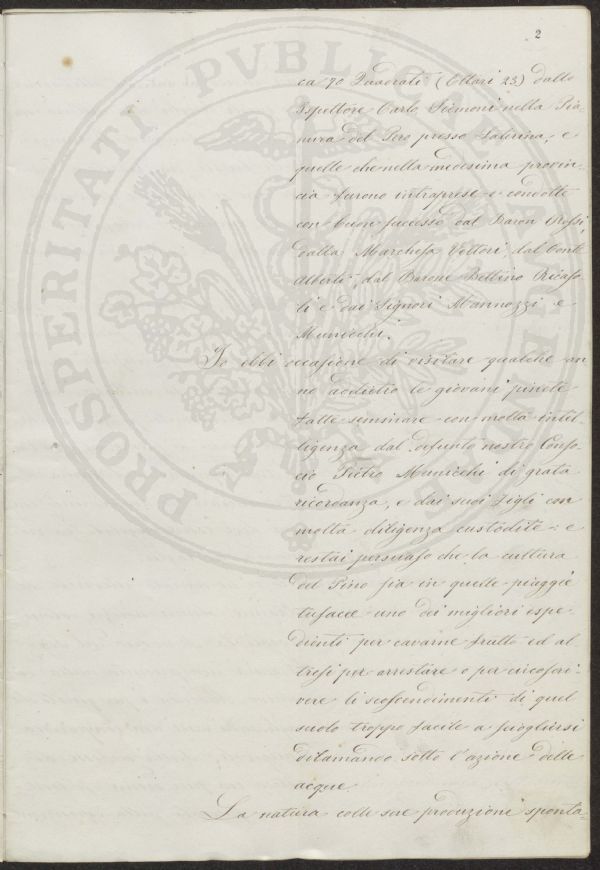 2
ca 70 Quadrati (Ettari 23) dallo
Ispettore Carlo Siemoni nella Pia-
nura del Pero presso Laterina, e
quelle che nella medesima provin-
cia furono intraprese e condotte
con buon successo dal Baron Grossi,
dalla Marchesa Vettori, dal Conte
Alberti, dal Barone Bettino Ricaso
li e dai Signori Mannozzi e
Municchi.
Io ebbi occasione di visitare qualche an
no addietro le giovani pinete
fatte seminare con molta intel-
ligenza dal defunto nostro Conso-
cio Pietro Municchi di grata
ricordanza, e dai suoi figli con
molta diligenza custodite: e
restai persuaso che la cultura
del Pino sia in quelle piagge
tufacee uno dei migliori espe-
dienti per cavarne frutto ed al-
tresì per arrestare o per circoscri-
vere li scoscendimenti di quel
suolo troppo facile a sciogliersi
dilamando sotto l'azione delle
acque.
La natura colle sue produzioni sponta-
PROSPERITATI PVBLICAE